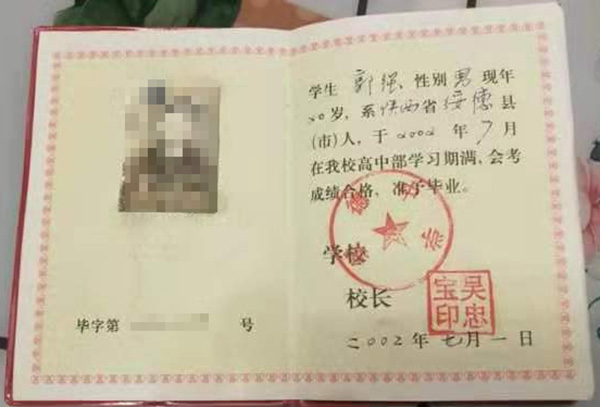 学生 郭强 性别 男 现年
20岁，系陕西省绥德县
(市)人，于2002年7月
在我校高中部学习期满，会考
成绩合格，准予毕业。
学校
校长
吴忠宝印
二〇〇2年七月一日
毕字第 号